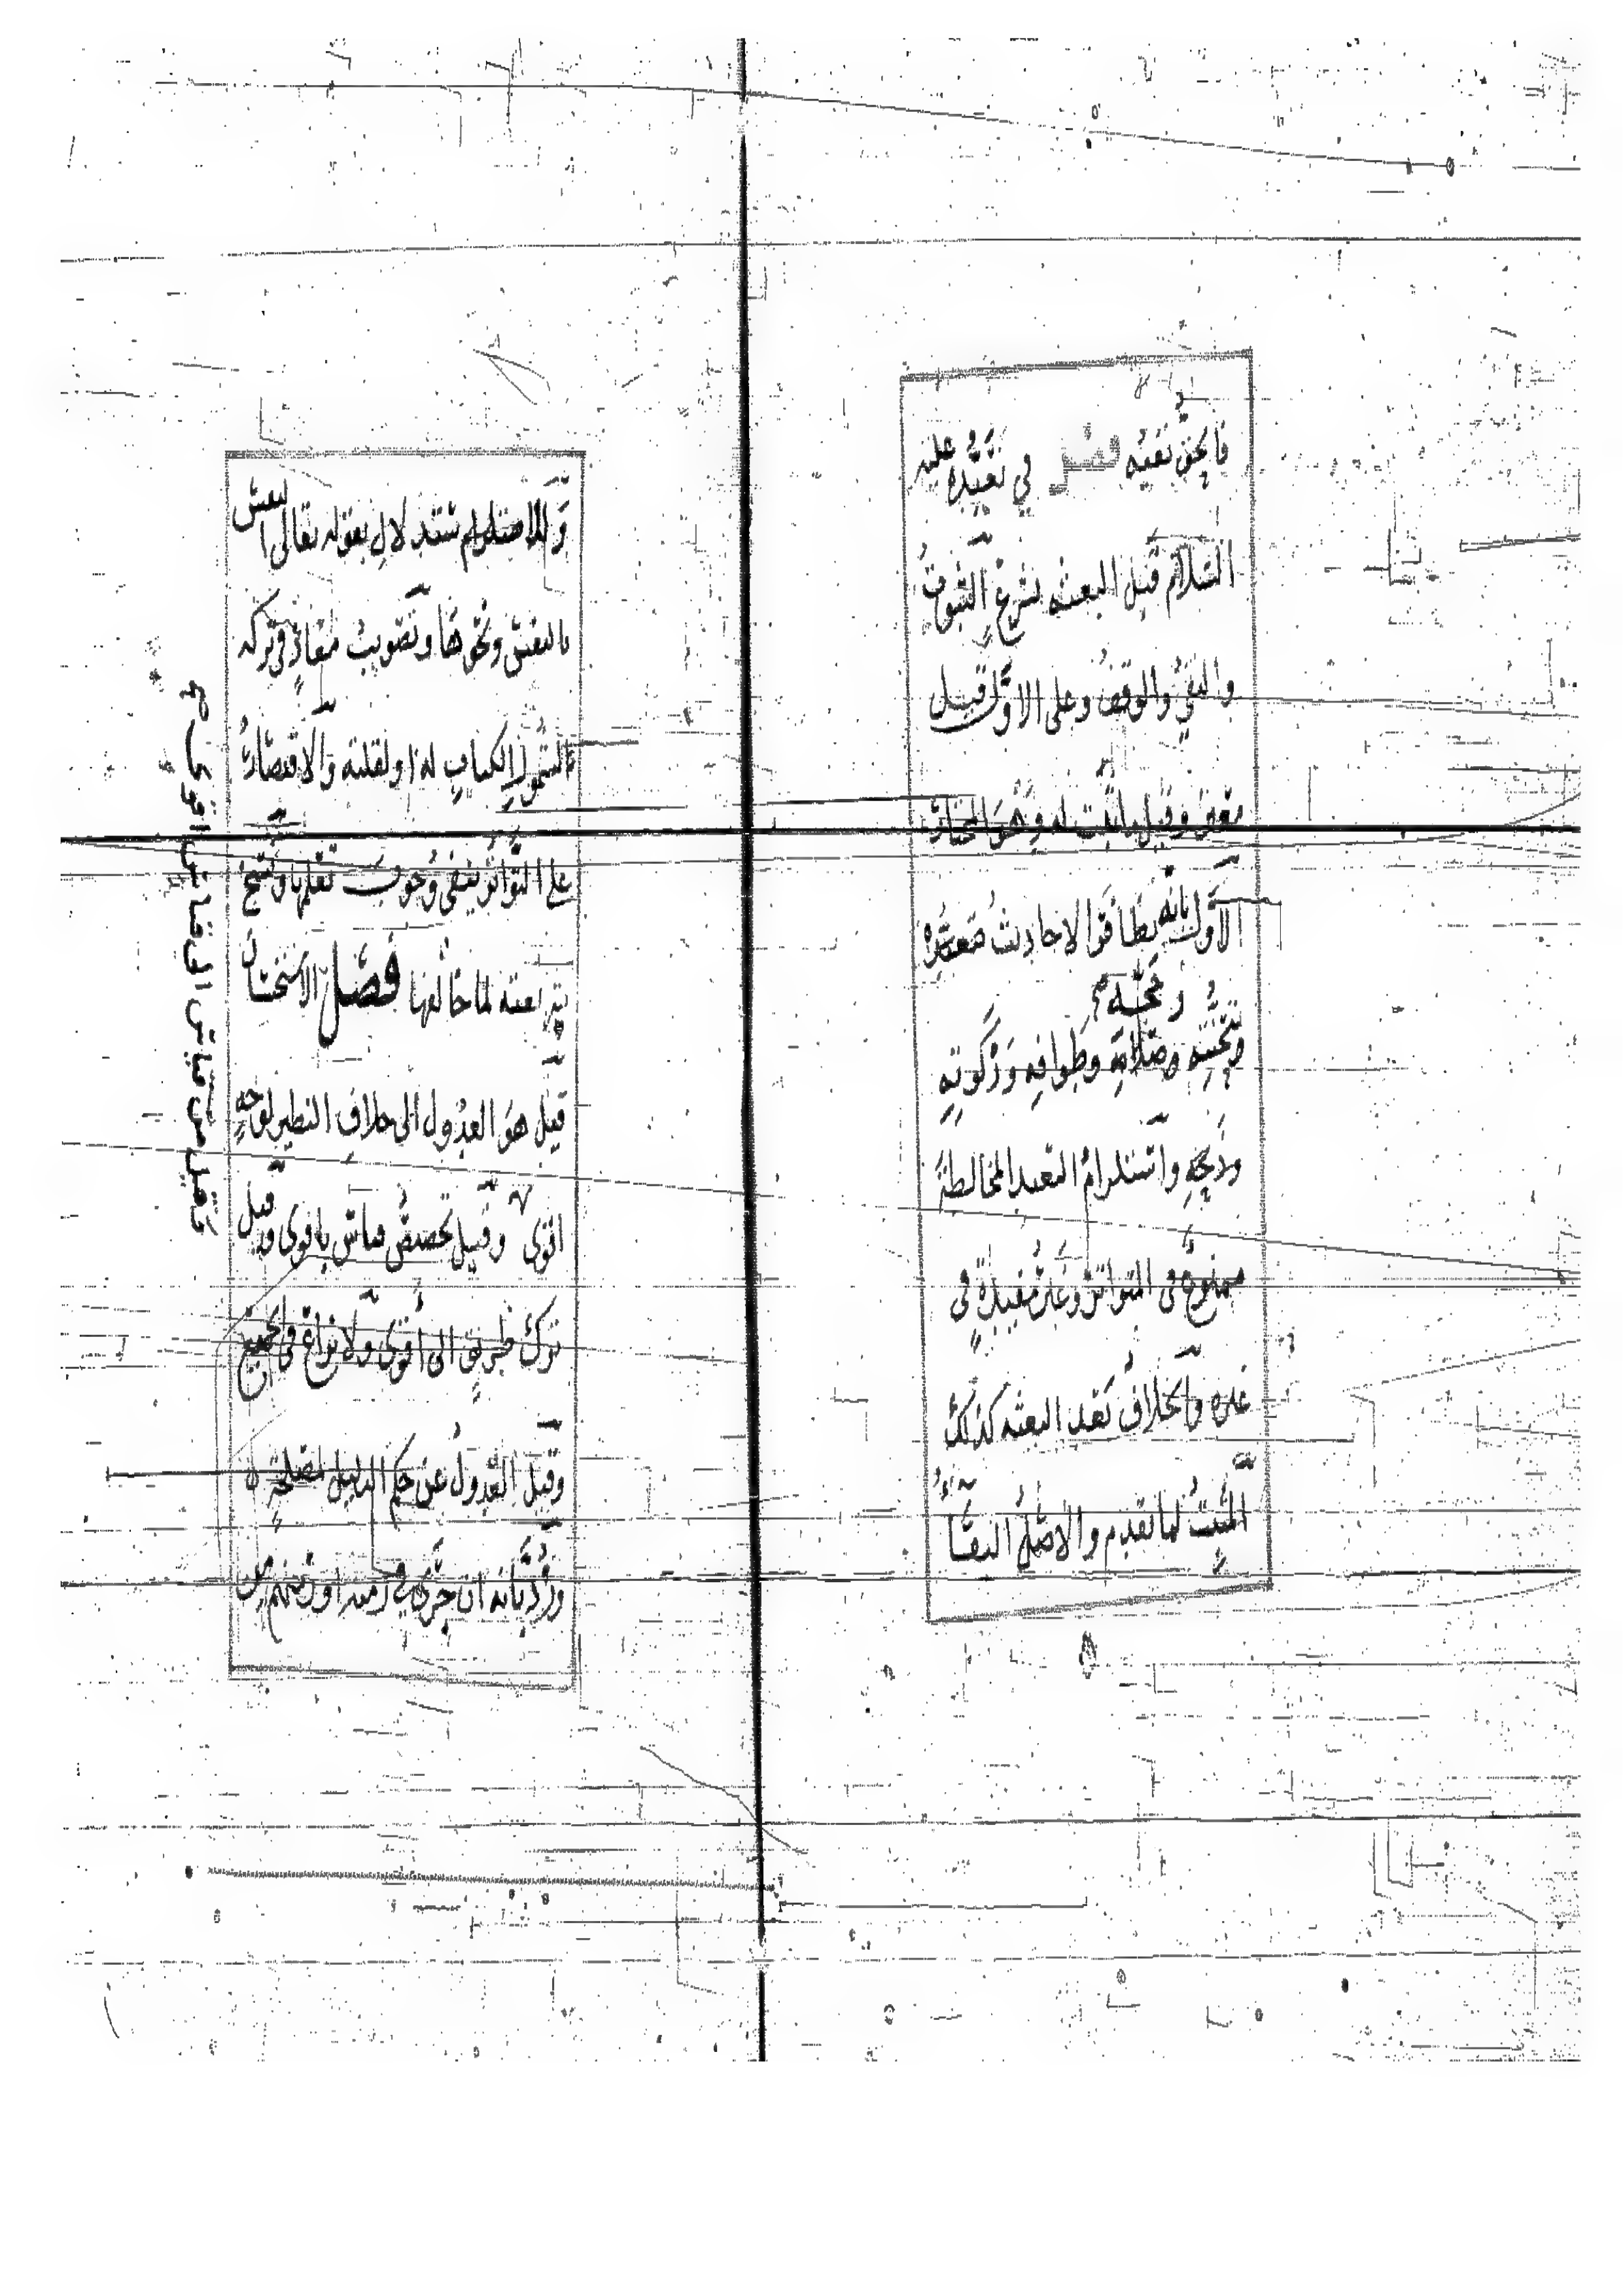 فأيحق نفيه فصل في تعبده عليه
السلام قبل البعثه بشرع الثبوت
والنفي والوقف وعلى الاول قيل
معين وقيل ما ثبت له وهو المختار
الاول بانه تظافر الاحاديث متعبده
وحجه
وتحنثه وصلاته وطوافه وزكوته
وذبحه واستلزام التعبد المخالطة
ممنوع في المتواتر وغير مفيدة في
غيره والخلاف بعد البعثه كذلك
المثبت لما تقدم والاصل البقاء
وللاستلزام ستدلال بقوله تعالى النفس
بالنفس ونحوها وتصويب معاذ في تركه
لشمول الكتاب له او لقلته والاقتصار
على التواتر ينفي وجوب تعلمها ونسخ
شريعته لما خالفها فصل الاستحسان
قيل هو العدول الى خلاف النظير لوجه
اقوى وقيل تخصيص قياس باقوى وقيل
ترك طريق الى اقوى ولا نزاع في الجميع
وقيل العدول عن حكم الدليل لمصلحة
ورد بانه ان جرى في زمنه او زمنهم من
وقيل من قياس الى قياس اقوى